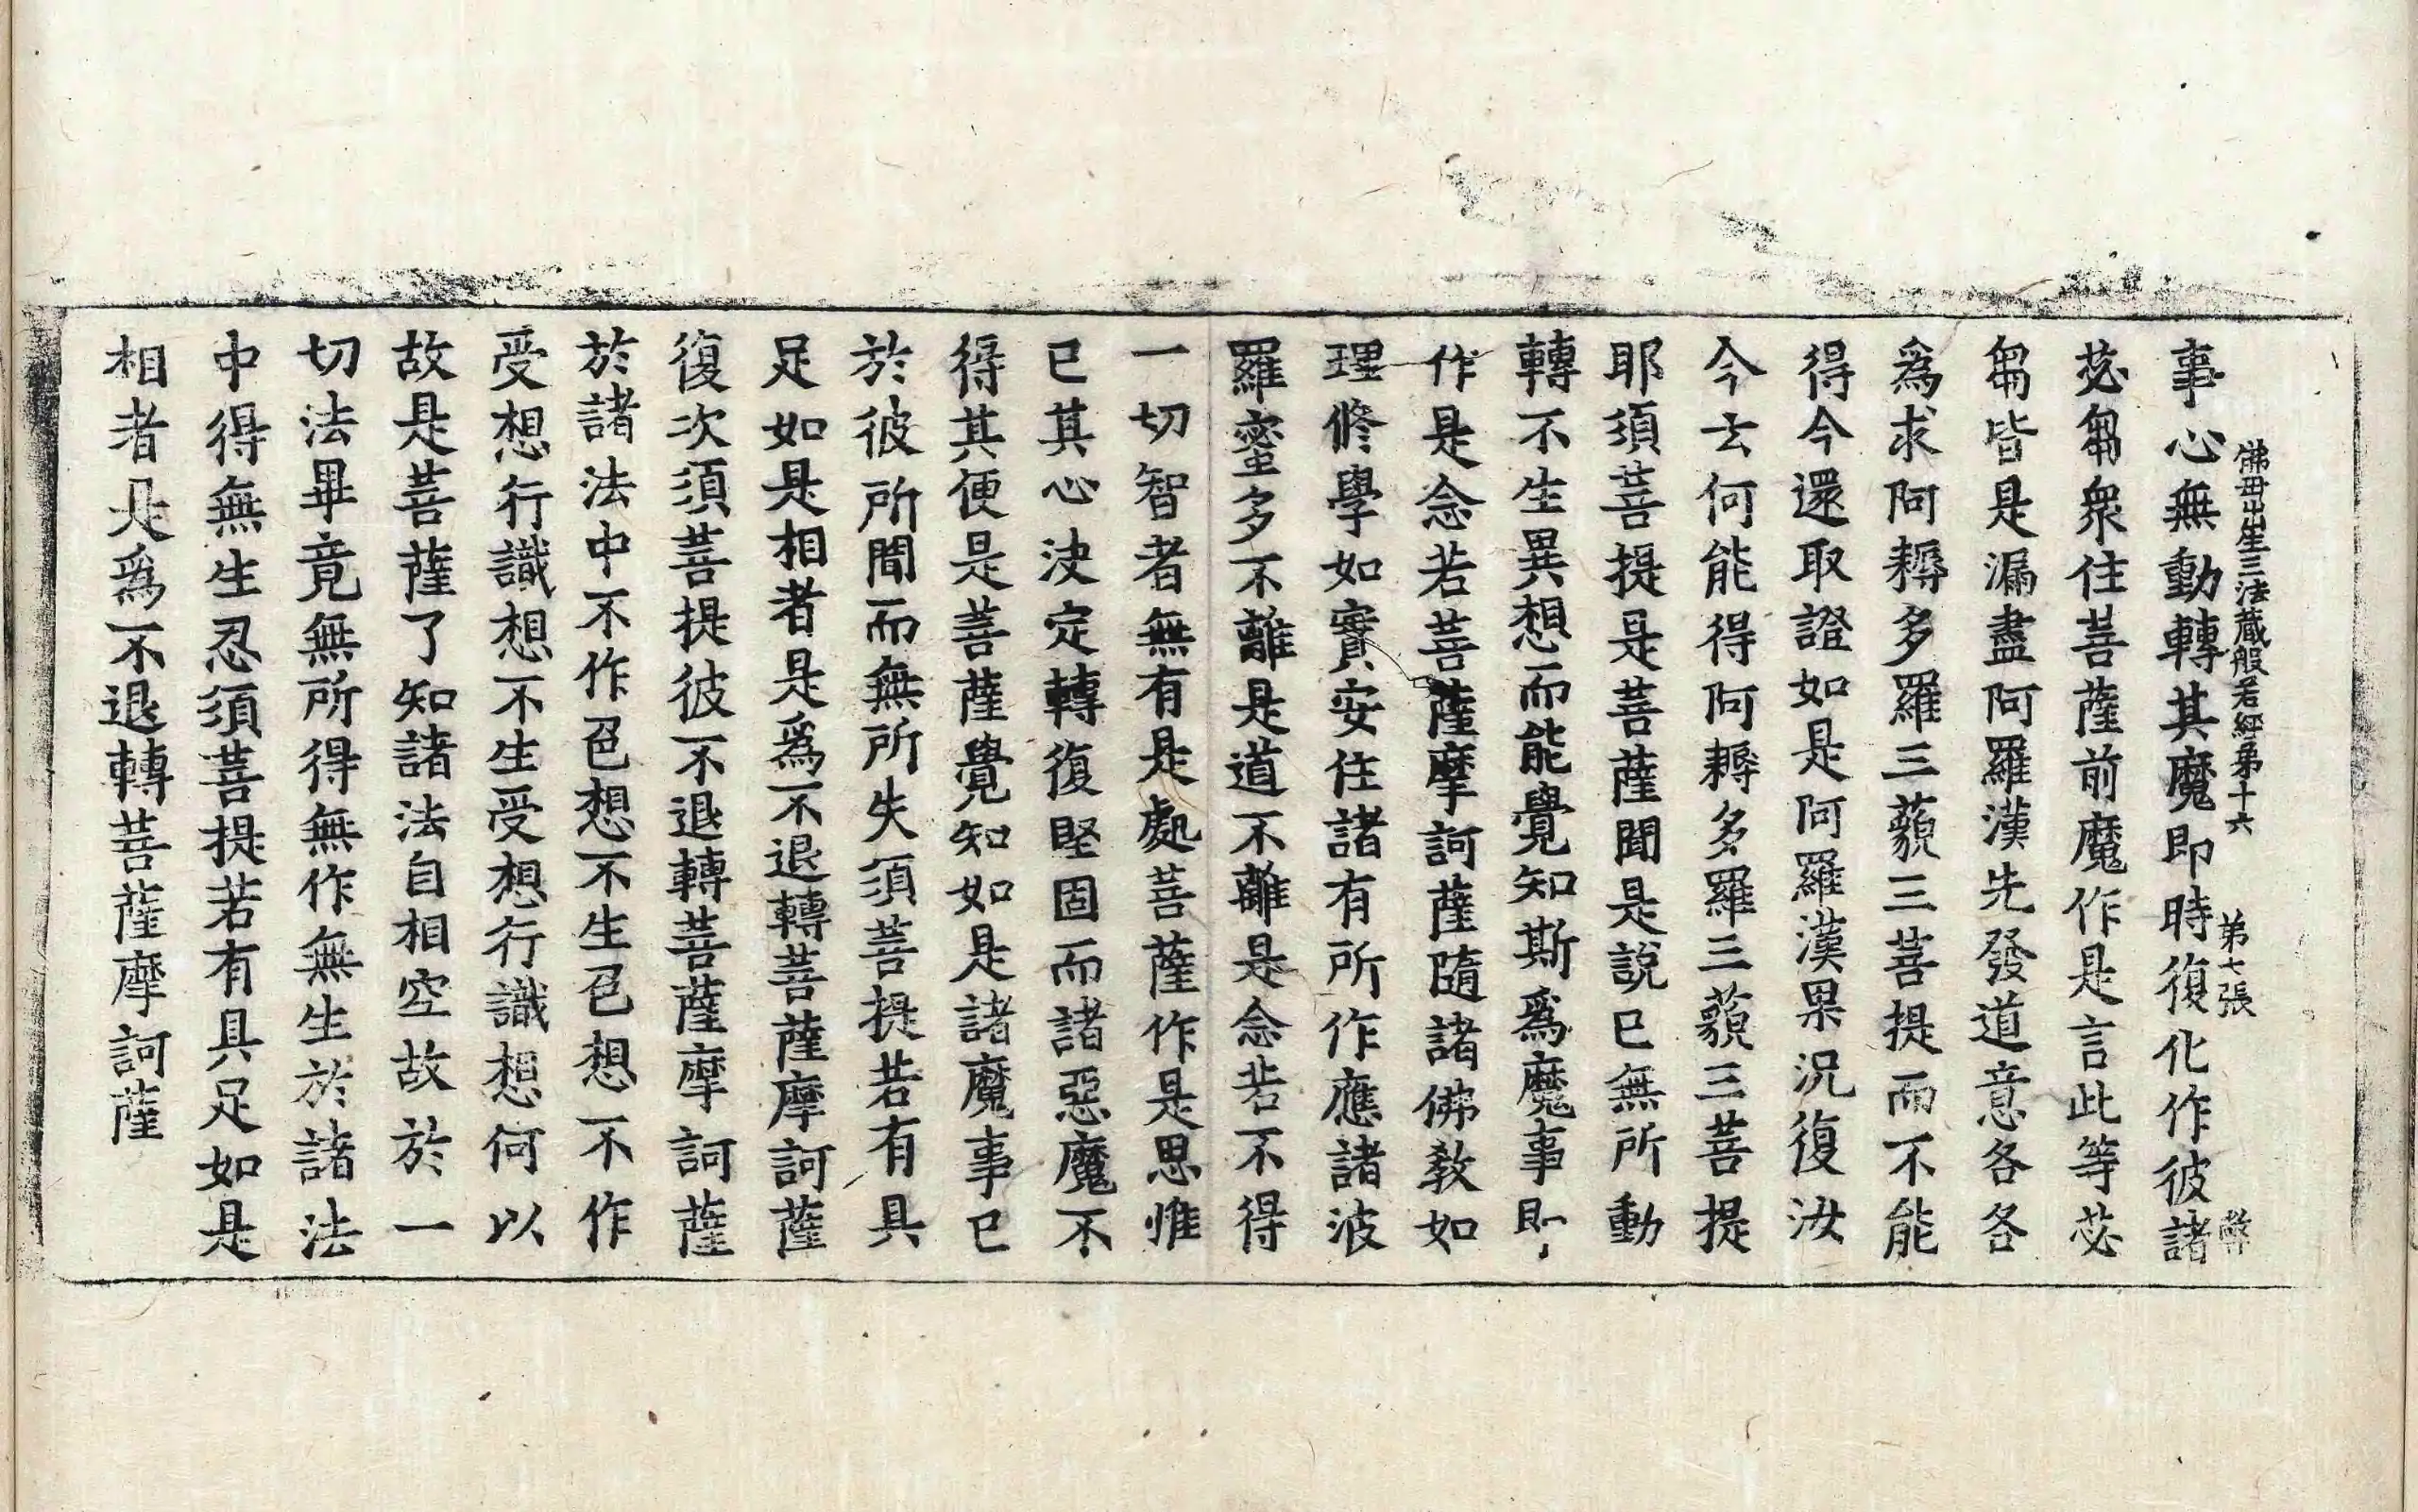 佛母出生三法藏般若經弟十六　弟七張　弊
事心無動轉其魔即時復化作彼諸
苾芻衆住菩薩前魔作是言此等苾
芻皆是漏盡阿羅漢先發道意各各
爲求阿耨多羅三藐三菩提而不能
得今還取證如是阿羅漢果況復汝
今云何能得阿耨多羅三藐三菩提
耶須菩提是菩薩聞是說已無所動
轉不生異想而能覺知斯爲魔事即
作是念若菩薩摩訶薩隨諸佛教如
理修學如實安住諸有所作應諸波
羅蜜多不離是道不離是念若不得
一切智者無有是處菩薩作是思惟
已其心決定轉復堅固而諸惡魔不
得其便是菩薩覺知如是諸魔事已
於彼所聞而無所失須菩提若有具
足如是相者是爲不退轉菩薩摩訶薩
復次須菩提彼不退轉菩薩摩訶薩
於諸法中不作色想不生色想不作
受想行識想不生受想行識想何以
故是菩薩了知諸法自相空故於一
切法畢竟無所得無作無生於諸法
中得無生忍須菩提若有具足如是
相者是爲不退轉菩薩摩訶薩